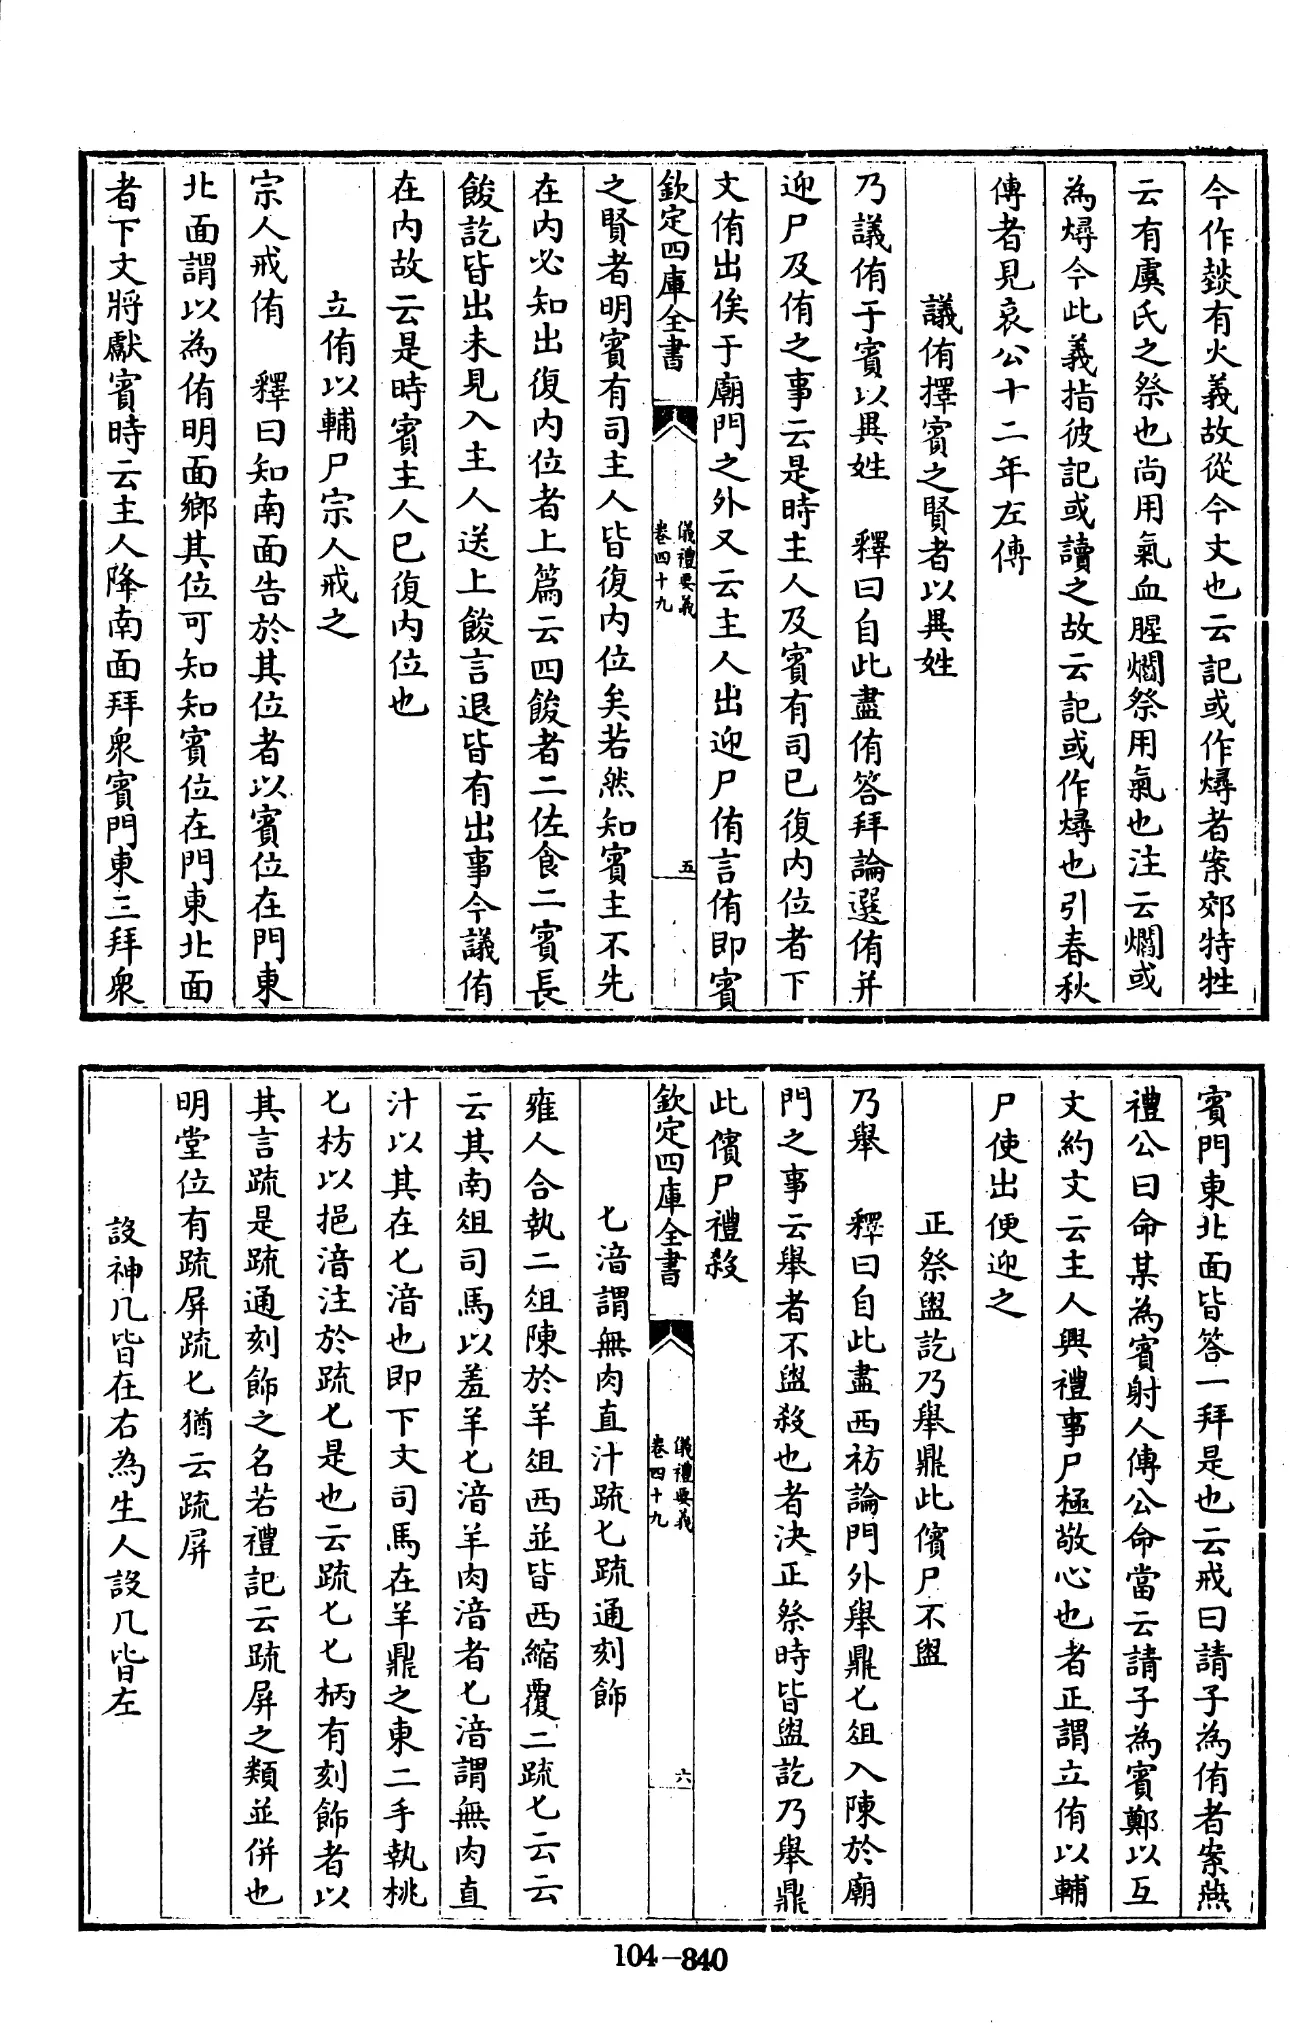 今作燅有火義故從今文也云記或作燖者案郊特牲
云有虞氏之祭也尚用氣血腥爓祭用氣也注云爓或
為燖今此義指彼記或讀之故云記或作燖也引春秋
傳者見哀公十二年左傳
議侑擇賓之賢者以異姓
乃議侑于賓以異姓　釋曰自此盡侑答拜論選侑并
迎尸及侑之事云是時主人及賓有司已復内位者下
文侑出俟于廟門之外又云主人出迎尸侑言侑即賓
欽定四庫全書
儀禮要義
卷四十九
五
之賢者明賓有司主人皆復内位矣若然知賓主不先
在内必知出復内位者上篇云四餕者二佐食二賓長
餕訖皆出未見入主人送上餕言退皆有出事今議侑
在内故云是時賓主人已復内位也
立侑以輔尸宗人戒之
宗人戒侑　釋曰知南面告於其位者以賓位在門東
北面謂以為侑明面鄉其位可知知賓位在門東北面
者下文將獻賓時云主人降南面拜衆賓門東三拜衆
賓門東北面皆答一拜是也云戒曰請子為侑者案燕
禮公曰命某為賓射人傳公命當云請子為賓鄭以互
文約文云主人興禮事尸極敬心也者正謂立侑以輔
尸使出便迎之
正祭盥訖乃舉鼎此儐尸不盥
乃舉　釋曰自此盡西枋論門外舉鼎匕俎入陳於廟
門之事云舉者不盥殺也者決正祭時皆盥訖乃舉鼎
此儐尸禮殺
欽定四庫全書
儀禮要義
卷四十九
六
匕湆謂無肉直汁疏匕疏通刻飾
雍人合執二俎陳於羊俎西並皆西縮覆二疏匕云云
云其南俎司馬以羞羊匕湆羊肉湆者匕湆謂無肉直
汁以其在匕湆也即下文司馬在羊鼎之東二手執桃
匕枋以挹湆注於疏匕是也云疏匕匕柄有刻飾者以
其言疏是疏通刻飾之名若禮記云疏屏之類並併也
明堂位有疏屏疏匕猶云疏屏
設神几皆在右為生人設几皆左
104-840